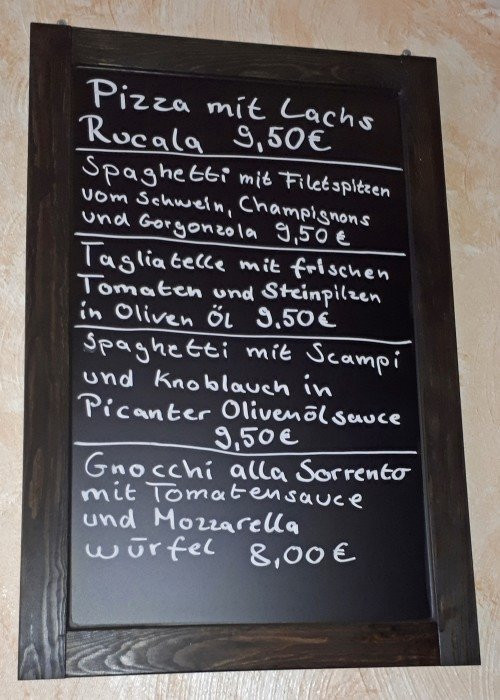 Pizza mit Lachs
Rucala 9,50€
Spaghetti mit Filetspitzen
vom Schwein, Champignons
und Gorgonzola 9,50€
Tagliatelle mit frischen
Tomaten und Steinpilzen
in Oliven Öl 9.50€
Spaghetti mit Scampi
und Knoblauch in
Picanter Olivenölsauce
9,50€
Gnocchi alla Sorrento
mit Tomatensauce
und Mozzarella
würfel 8,00€